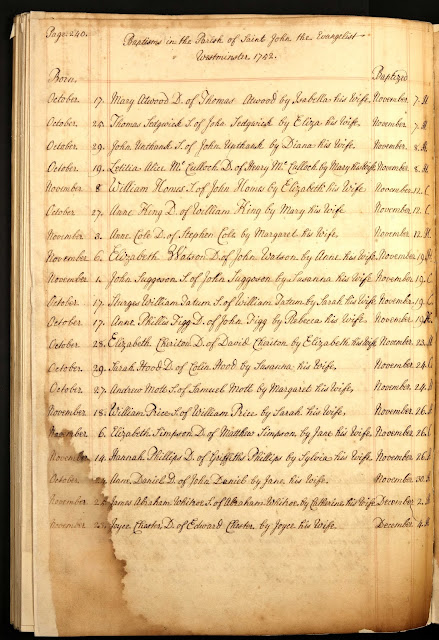 Page: 240.
Baptisms in the Parish of Saint John the Evangelist
Westminster 1742.
Born. Baptized
October 17. Mary Atwood D. of Thomas Atwood by Isabella his Wife November 7. H
October 25. Thomas Sedgwick S. of John Sedgwick by Eliza his Wife. November 7. H
October 29. John Unthank S. of John Unthank by Diana his Wife. November 8. H
October 19. Letitia Alice Mc. Culloch D. of Henry Mc. Culloch by Mary his Wife November 8. H
November 8. William Homes S. of John Homes by Elizabeth his Wife November 12. C
October 27. Anne King D. of William King by Mary his Wife November 12. C
November 3. Anne Cole D. of Stephen Cole by Margaret his Wife. November 12. H
November 6. Elizabeth Watson D. of John Watson by Anne his Wife November 19.
November 1. John Suggoson S. of John Suggoson by Susanna his Wife. November 19. C
October 17. William Tatum S. of William Tatum by Sarah his Wife. November 19. C
October 17. Anne Phillis Figg D. of John Figg by Rebecca his Wife. November 19. H
October 28. Elizabeth Chariton D. of David Chariton by Elizabeth his Wife November 23. H
October 29. Sarah Hood D. of Colin Hood by Susanna his Wife. November 24. C
October 27. Andrew Mott S. of Samuel Mott by Margaret his Wife, November 24.
November 18. William Price S. of William Price by Sarah his Wife, November 26. H
November 6. Elizabeth Simpson D. of Matthew Simpson, by Jane his Wife November 26. C
November 14. Hannah Phillips D. of Griffiths Phillips by Sylvia his Wife. November 26.
October Ann Daniel D. of John Daniel by Jane, his Wife. November 30.
November James Abraham Whitner S. of Abraham Whitner by Catharine his Wife December 2.
November 23. Joyce Chester D. of Edward Chester by Joyce his Wife. December 4. H